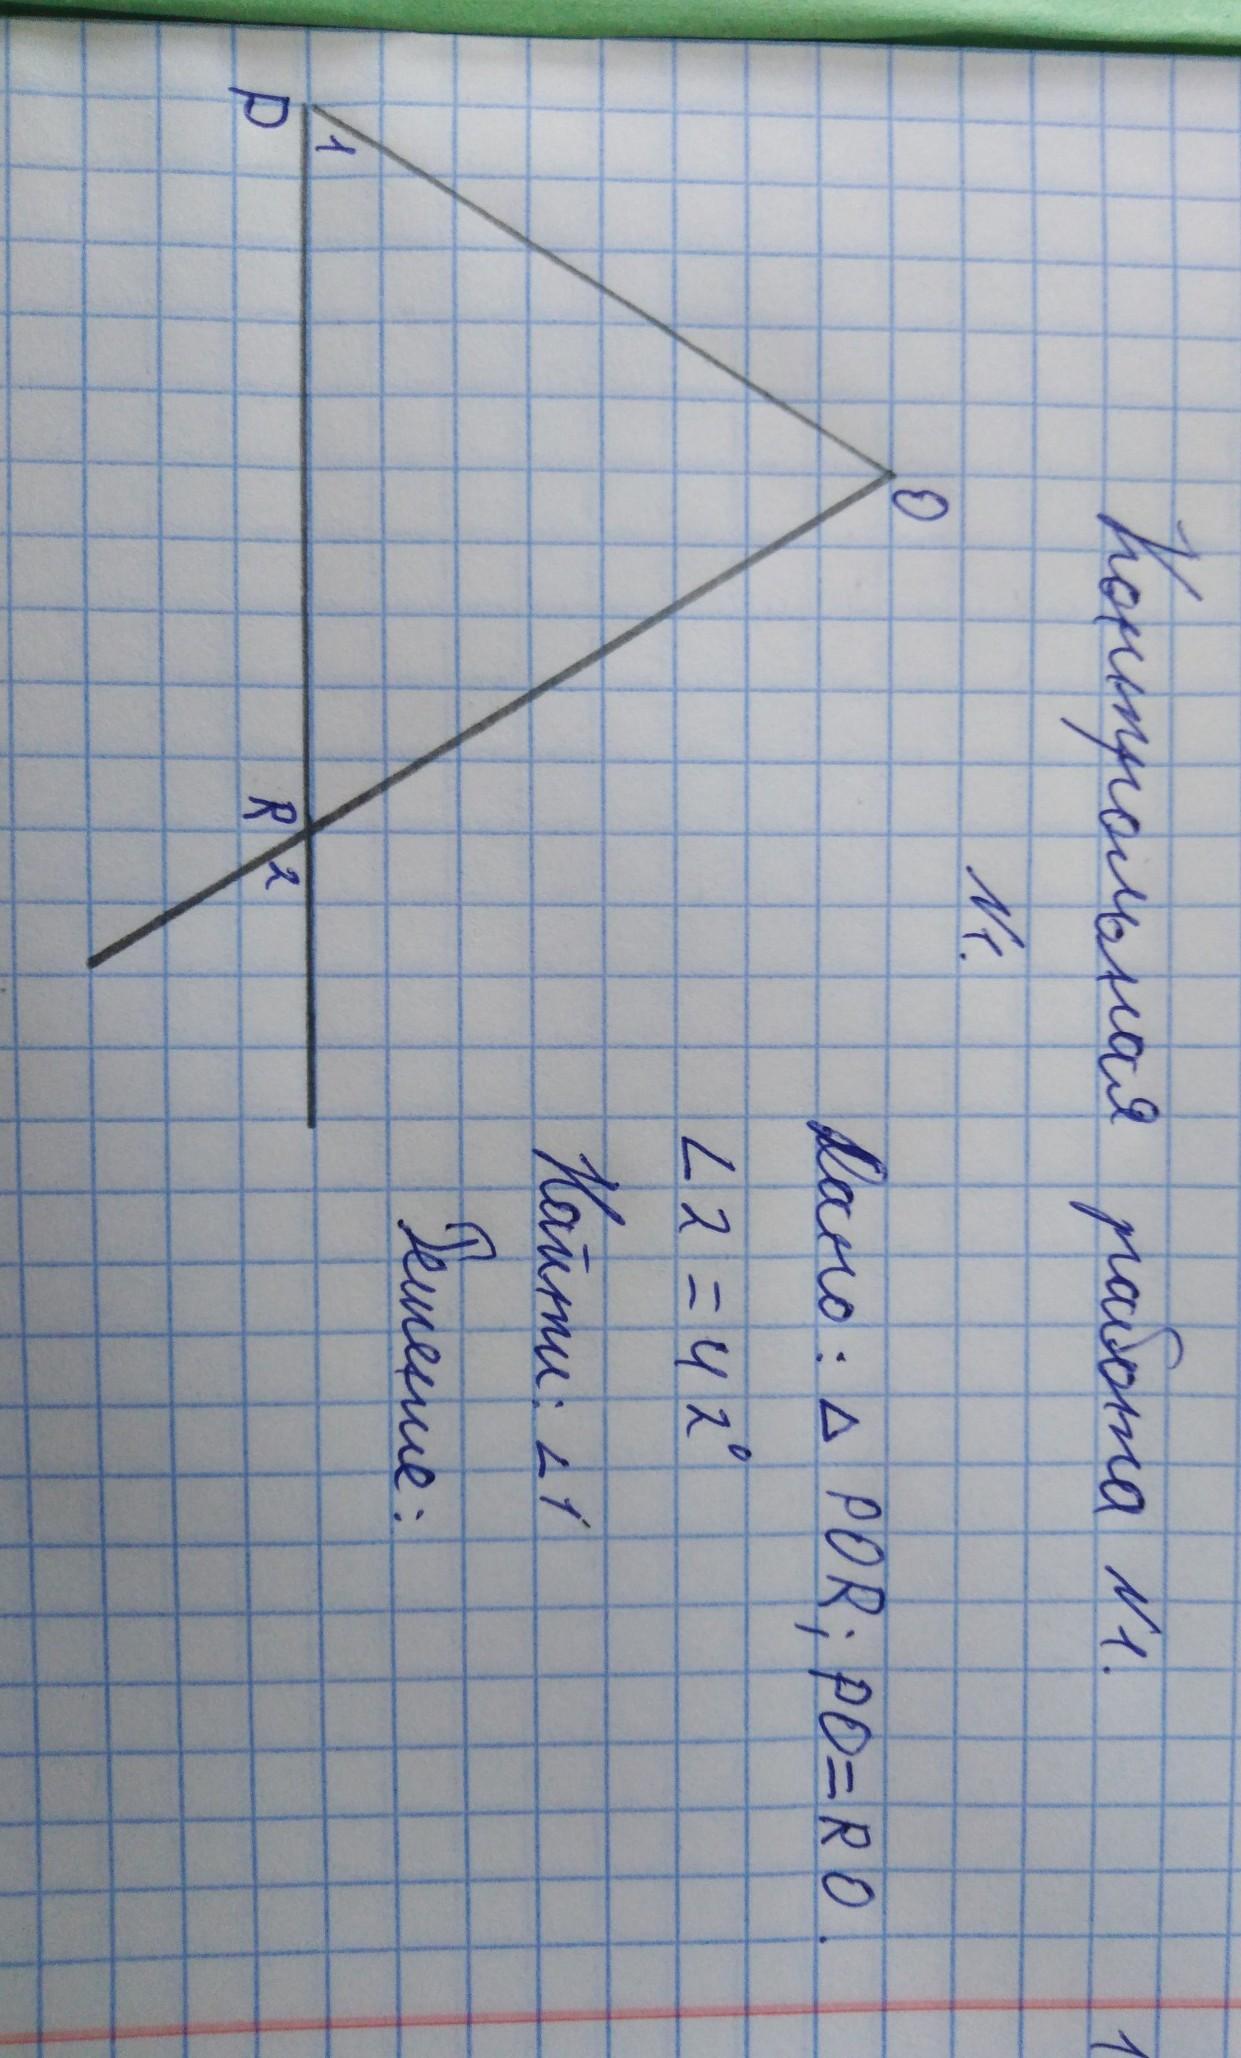 Контрольная работа №1.
№1.
O
Дано: △ POR; PO=RO.
∠2=42°
Найти: ∠1
Решение:
1
P
R
2